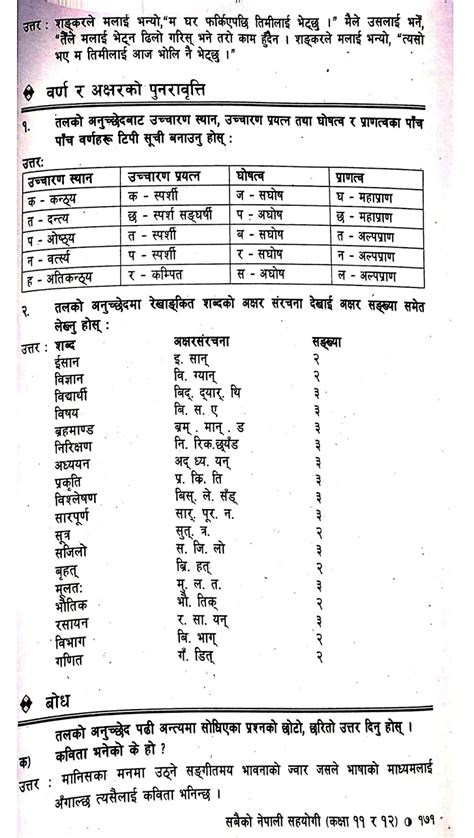 उत्तर : शङ्करले मलाई भन्यो,“म घर फर्किएपछि तिमीलाई भेट्छु ।” मैले उसलाई भनेँ,
“तैँले मलाई भेट्न ढिलो गरिस् भने तरो काम हुँदैन । शङ्करले मलाई भन्यो, “त्यसो
भए म तिमीलाई आज भोलि नै भेट्छु ।”
वर्ण र अक्षरको पुनरावृत्ति
१. तलको अनुच्छेदबाट उच्चारण स्थान, उच्चारण प्रयत्न तथा घोषत्व र प्राणत्वका पाँच
पाँच वर्णहरू टिपी सूची बनाउनु होस् :
उत्तर:
उच्चारण स्थान उच्चारण प्रयत्न घोषत्व प्राणत्व
क - कन्ठ्य क - स्पर्शी ज - सघोष घ - महाप्राण
त - दन्त्य छ - स्पर्श सङ्घर्षी प - अघोष छ - महाप्राण
प - ओष्ठ्य त - स्पर्शी ब - सघोष त - अल्पप्राण
न - वर्त्स्य प - स्पर्शी र - सघोष न - अल्पप्राण
ह - अतिकन्ठ्य र - कम्पित स - अघोष ल - अल्पप्राण
२. तलको अनुच्छेदमा रेखाङ्कित शब्दको अक्षर संरचना देखाई अक्षर सङ्ख्या समेत
लेख्नु होस् :
उत्तर : शब्द अक्षरसंरचना सङ्ख्या
ईसान इ. सान् २
विज्ञान वि. ग्यान् २
विद्यार्थी बिद्. द्यार्. थि ३
विषय बि. स. ए ३
ब्रहमाण्ड ब्रम् . मान् . ड ३
निरिक्षण नि. रिक.छ्यँड ३
अध्ययन अद् ध्य. यन् ३
प्रकृति प्र. कि. ति ३
विश्लेषण बिस्. ले. सँड् ३
सारपूर्ण सार्. पूर. न. ३
सूत्र सुत्. त्र. २
सजिलो स. जि. लो ३
बृहत् ब्रि. हत् २
मूलतः मु. ल. त. ३
भौतिक भौ. तिक् २
रसायन र. सा. यन् ३
विभाग बि. भाग् २
गणित गँ. डित् २
बोध
तलको अनुच्छेद पढी अन्त्यमा सोधिएका प्रश्नको छोटो, छरितो उत्तर दिनु होस् ।
क) कविता भनेको के हो ?
उत्तर : मानिसका मनमा उठ्ने सङ्गीतमय भावनाको ज्वार जसले भाषाको माध्यमलाई
अँगाल्छ त्यसैलाई कविता भनिन्छ ।
सबैको नेपाली सहयोगी (कक्षा ११ र १२) १७१